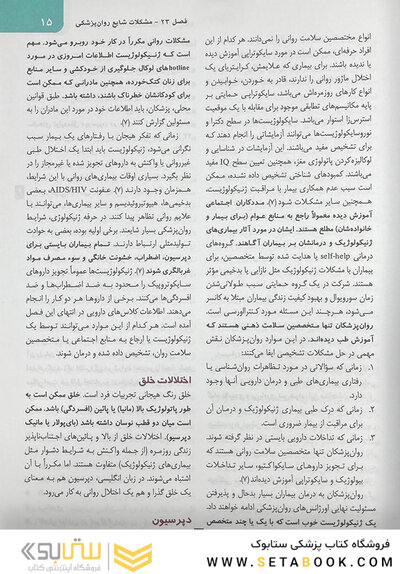 فصل ۲۳ - مشکلات شایع روان‌پزشکی
۱۵
انواع مختصصین سلامت روانی را نمی‌دانند. هر کدام از این
افراد حرفه‌ای، ممکن است در مورد سایکوتراپی آموزش دیده
یا ندیده باشند. برای بیماری که علایمش، کرایتریای یک
اختلال ماژور روانی را ندارند، قادر به خوردن، خوابیدن و
انواع کارهای روزمره‌اش می‌باشد، سایکوتراپی حمایتی بر
پایه مکانیسم‌های تطابقی موجود برای مقابله با یک موقعیت
استرس‌زا استوار می‌باشد. سایکولوژیست‌ها در سطح دکترا و
نوروسایکولوژیست‌ها می‌توانند آزمایشاتی را انجام دهند که
برای تشخیص مفید می‌باشند. این آزمایشات در شناسایی و
لوکالیزه‌کردن پاتولوژی مغز، همچنین تعیین سطح IQ مفید
می‌باشند. کمبودهای شناختی تشخیص داده نشده، ممکن
است سبب عدم همکاری بیمار با مراقبت ژنیکولوژیست،
همچنین سایر مشکلات شود (۷). مددکاران اجتماعی
آموزش دیده معمولاً راجع به منابع عوام (برای بیمار و
خانواده‌شان) مطلع هستند. ایشان در مورد آثار بیماری‌های
ژنیکولوژیک و درمانشان بر بیماران آگاهند. گروه‌های
درمانی self-help یا هدایت شده توسط متخصصین، برای
بیماران با مشکلات ژنیکولوژیک مثل نازایی یا بدخیمی مؤثر
هستند. شرکت در یک گروه حمایتی سبب طولانی‌شدن
زمان سورویوال و بهبود کیفیت زندگی بیماران مبتلا به کانسر
می‌شود، هرچند این مسئله مورد کنتراورسی است.
روان‌پزشکان تنها متخصصین سلامت ذهنی هستند که
آموزش طب دیده‌اند. در این موارد روان‌پزشکان نقش
مهمی در حل مشکلات تشخیصی ایفا می‌کنند:
۱. زمانی که سؤالاتی در مورد تظاهرات روان‌شناسی یا
رفتاری بیماری‌های طبی و درمان دارویی آنها وجود
دارد.
۲. زمانی که درک طبی بیماری ژنیکولوژیک و درمان آن
برای مراقبت از بیمار ضروری است.
۳. زمانی که تداخلات دارویی بایستی در نظر گرفته شوند.
روان‌پزشکان تنها متخصصین سلامت روانی هستند که
برای تجویز داروهای سایکواکتیو، سایر تداخلات
بیولوژیک و سایکوتراپی آموزش دیده‌اند (۷).
روان‌پزشکان به درمان بیماران بسیار بدحال و پذیرفتن
مسئولیت نهایی اورژانس‌های روان‌پزشکی ادامه خواهند داد.
یک ژنیکولوژیست خوب است که با یک یا چند متخصص
مشکلات روانی مکرراً در کار خود روبرو می‌شود. مهم
است که ژنیکولوژیست اطلاعات امروزی در مورد
hotlineهای لوکال جلوگیری از خودکشی و سایر منابع
برای زنان کتک‌خورده، همچنین مادرانی که ممکن است
برای کودکانشان خطرناک باشند، داشته باشد. طبق قوانین
محلی، پزشکان، باید اطلاعات خود در مورد این مادران را به
مسئولین گزارش کنند (۷).
زمانی که تفکر هیجان یا رفتارهای یک بیمار سبب
نگرانی می‌شود، ژنیکولوژیست باید ابتدا یک اختلال طبی
غیرروانی یا واکنش به داروهای تجویز شده یا غیرمجاز را در
نظر بگیرد. بسیاری اوقات بیماری‌های روانی با این شرایط،
همزمان وجود دارند (۷). عفونت AIDS/HIV، بعضی
بدخیمی‌ها، هیپوتیروئیدیسم و سایر بیماری‌ها، می‌توانند با
علایم روانی تظاهر پیدا کنند. در حرفه ژنیکولوژی، شرایط
روان‌پزشکی بسیار شایعند. برخی اولیه بوده، بعضی به حوادث
تولیدمثلی ارتباط دارند. تمام بیماران بایستی برای
دپرسیون، اضطراب، خشونت خانگی و سوء مصرف مواد
غربالگری شوند (۷). ژنیکولوژیست‌ها عموماً تجویز داروهای
سایکوتروپیک را محدود به ضد اضطراب‌ها و ضد
افسردگی‌ها می‌کنند. برخی از داروها هر دو کار را انجام
می‌دهند. اطلاعات کلاس‌های دارویی در انتهای این فصل
آمده است. هر کدام از این موارد می‌توانند توسط یک
ژنیکولوژیست یا ارجاع به منابع اجتماعی یا متخصصین
سلامت روان، تشخیص داده شده و درمان شوند.
اختلالات خلق
خلق رنگ هیجانی تجربیات فرد است. خلق ممکن است به
طور پاتولوژیک بالا (مانیا) یا پائین (افسردگی) باشد. ممکن
است میان دو قطب نوسان داشته باشد (بای‌پولار یا مانیک
دپرسیون). اختلالات خلق از بالا و پائین‌های اجتناب‌ناپذیر
زندگی روزمره (از جمله واکنش به شرایط دشوار مثل
بیماری‌های ژنیکولوژیک) متفاوت هستند. اما مکرراً با آن
اشتباه می‌شوند. در زبان انگلیسی، دپرسیون هم به معنای
یک خلق گذرا و هم یک اختلال روانی به کار می‌رود.
دپرسیون
فروشگاه کتاب پزشکی ستابوک
WWW.SETABOOK.COM
ستابوک
فروشگاه اینترنتی کتاب